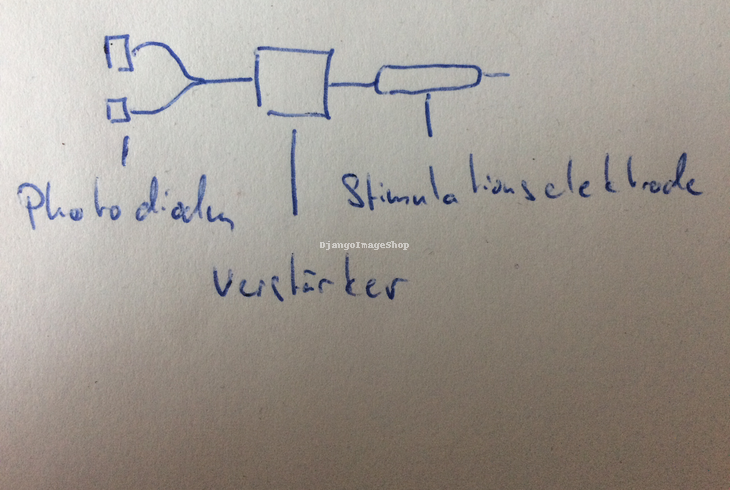 Photodioden
Stimulationselektrode
DjangoImageShop
Verstärker